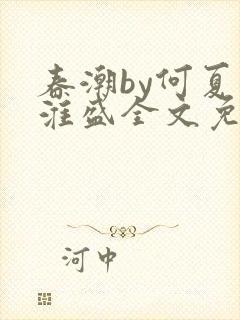 春潮by何夏
淮盛全文免
河中